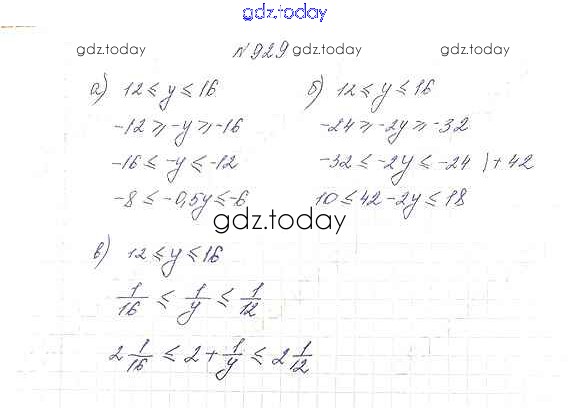 gdz.today
gdz.today №929 gdz.today gdz.today
а) 12 ≤ y ≤ 16
-12 ≥ -y ≥ -16
-16 ≤ -y ≤ -12
-8 ≤ -0,5y ≤ -6
б) 12 ≤ y ≤ 16
-24 ≥ -2y ≥ -32
-32 ≤ -2y ≤ -24 )+42
10 ≤ 42 - 2y ≤ 18
gdz.today
в) 12 ≤ y ≤ 16
1/16 ≤ 1/y ≤ 1/12
2 1/16 ≤ 2 + 1/y ≤ 2 1/12